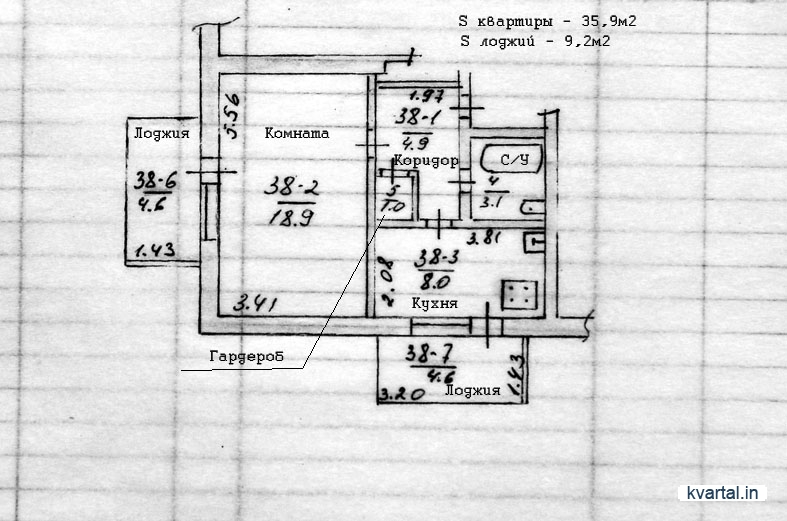 S квартиры - 35,9м2
S лоджий - 9,2м2
1.97
38-1
4.9
Коридор
5.56
Лоджия
Комната
С/У
38-6
4.6
1.43
38-2
18.9
5
1.0
4
3.1
3.81
38-3
8.0
2.08
Кухня
3.41
Гардероб
38-7
4.6
1.43
3.20
Лоджия
kvartal.in